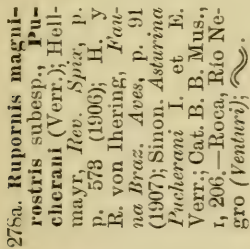 278a. Rupornis magni-
rostris subesp., Pu-
cherani (Verr.); Hell-
mayr, Rev. Spix, p.
p. 573 (1906); H. y
R. von Ihering, Fau-
na Braz. Aves, p. 91
(1907); Simon. Asturina
Pucherani I. et E.
Verr.; Cat. B. B. Mus.,
I, 206.—Roca, Río Ne-
gro (Venturi);